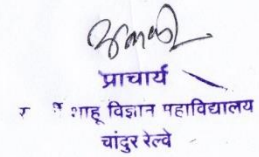 प्राचार्य
शाहू विज्ञान महाविद्यालय
चांदुर रेल्वे